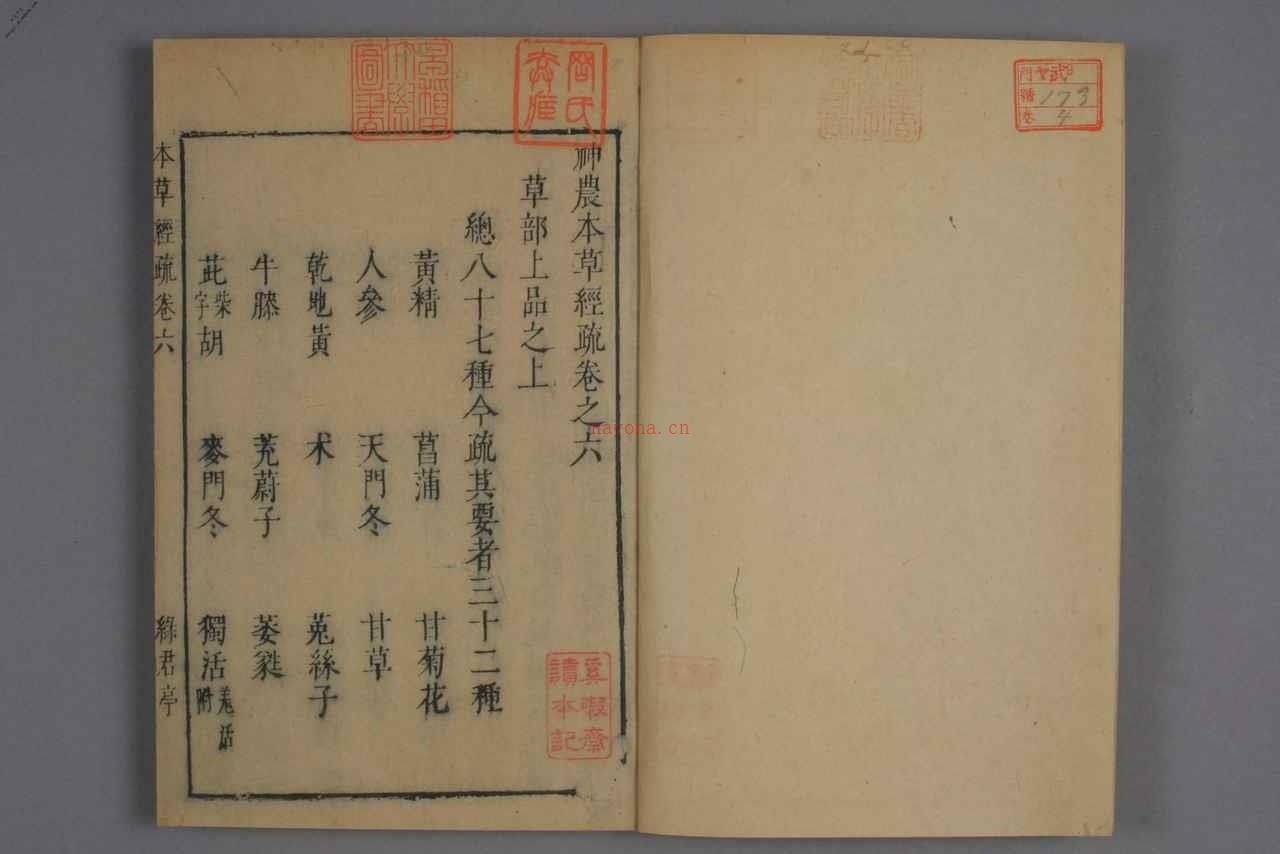 神農本草經疏卷之六
草部上品之上
總八十七種今疏其要者三十二種
黃精 菖蒲 甘菊花
人參 天門冬 甘草
乾地黃 朮 菟絲子
牛膝 茺蔚子 萎蕤
茈柴字胡 麥門冬 獨活羌活附
本草經疏卷六 綠君亭
早稻田大學圖書
奚暇齋讀本記
173
4
nayona.cn